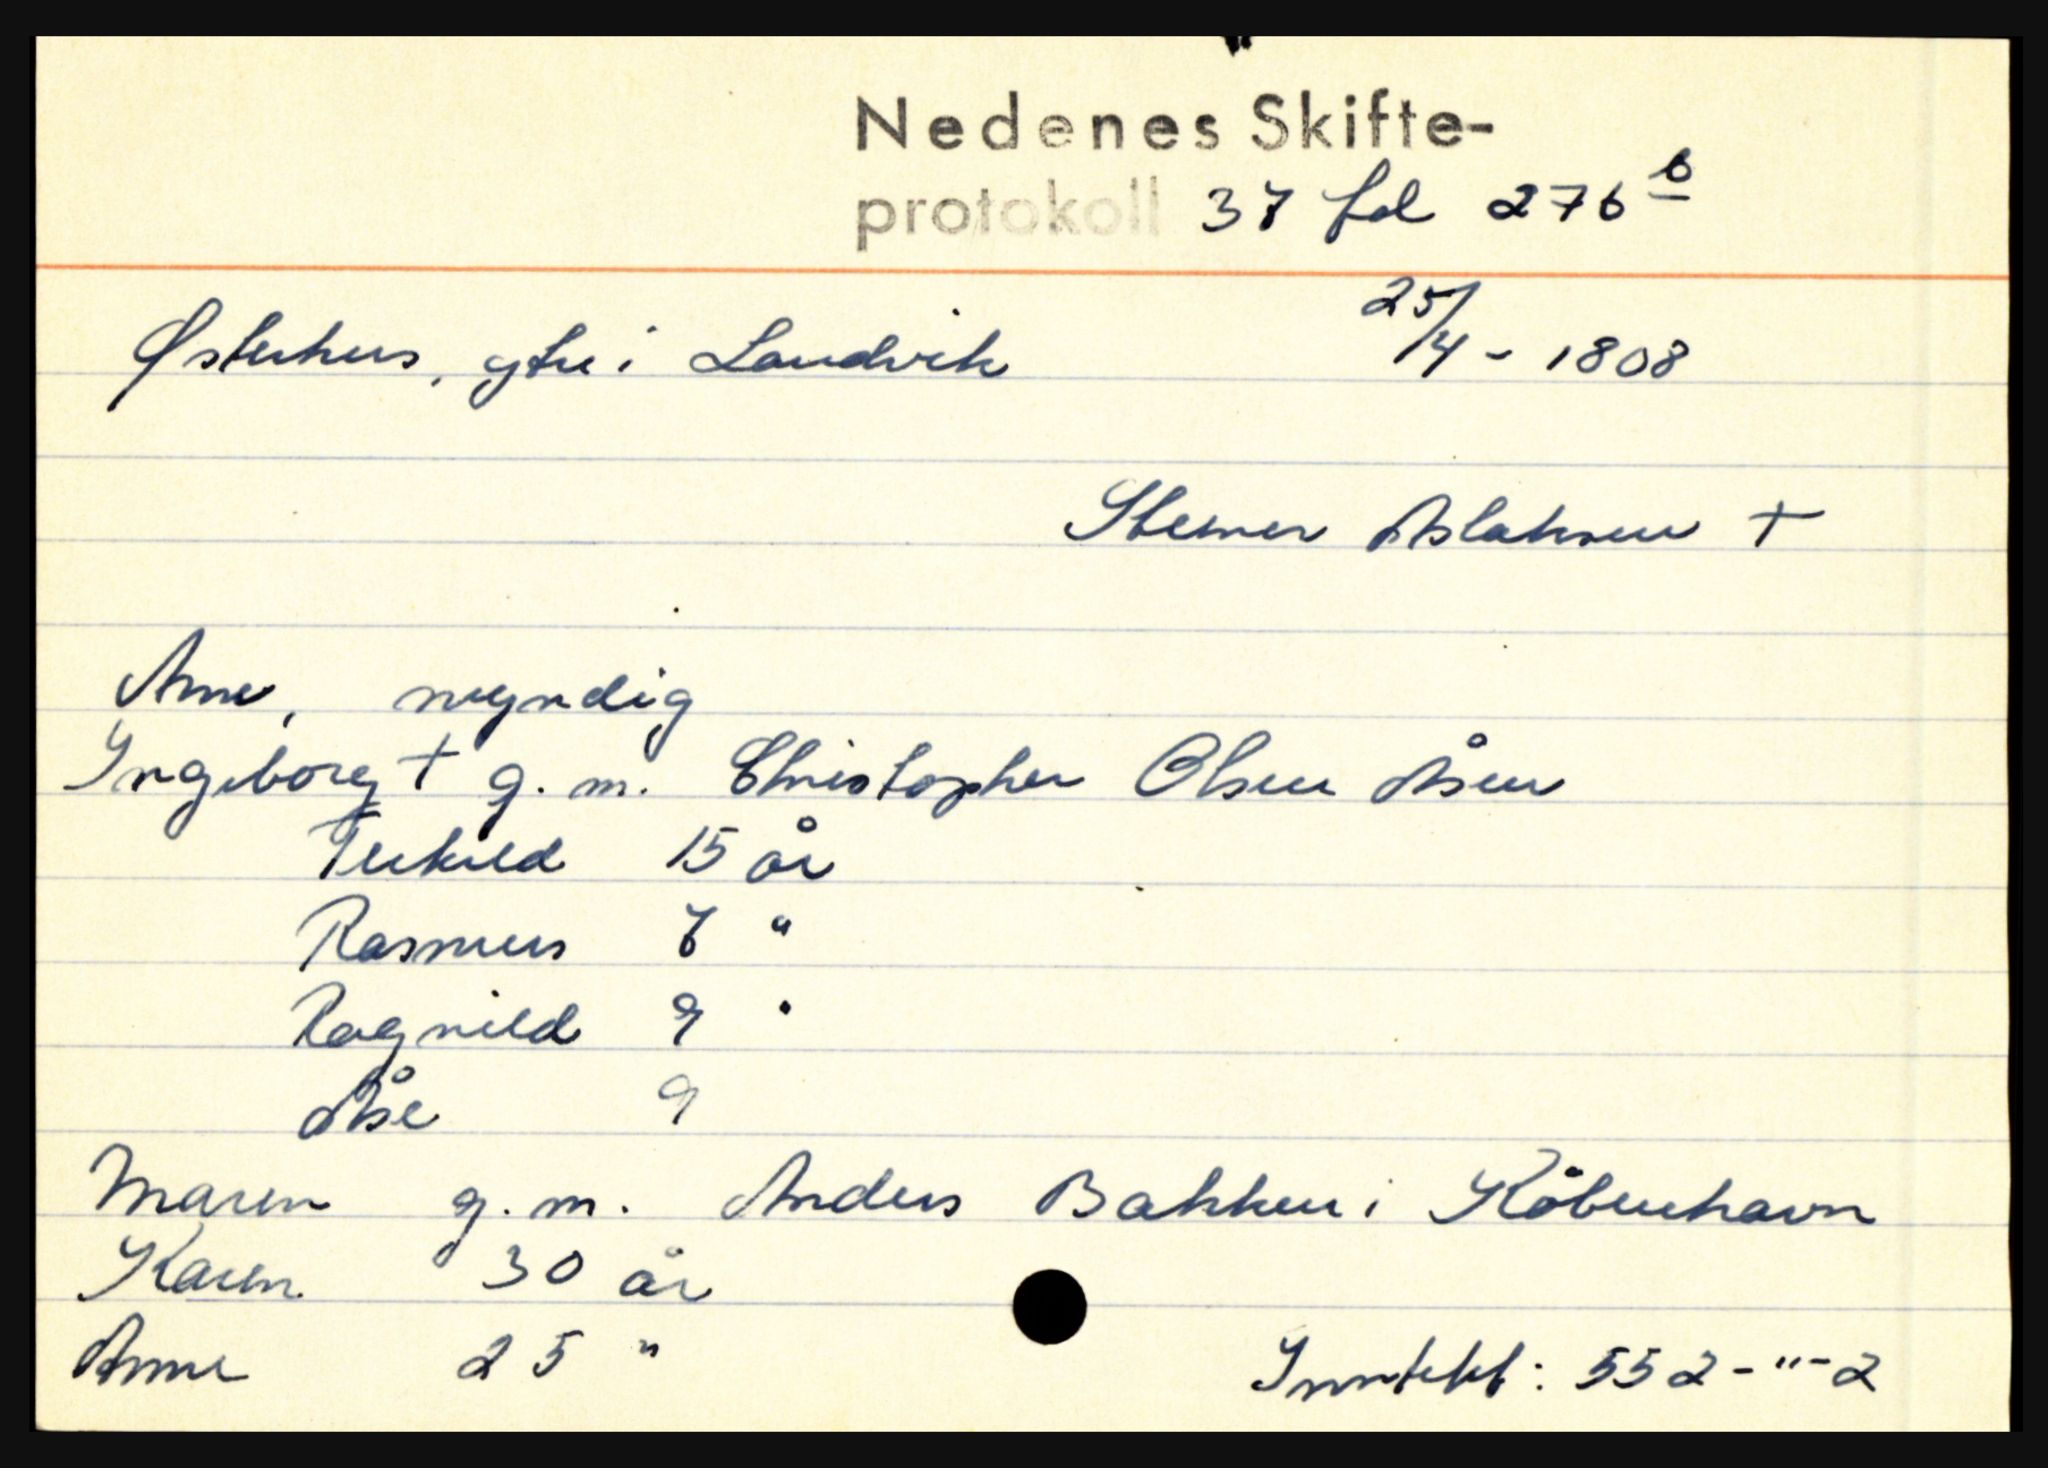 Nedenes Skifte-
protokoll 37 fol 276 b
Østerhus, ytre i Landvik 25/4 - 1808
Steiner Aslaksen +
Arne, myndig
Ingeborg + g. m. Christopher Olsen Åsen
Terkild 15 år
Rasmus 7 "
Ragnild 9 "
Åse 9
Maren g. m. Anders Bakken i Köbenhavn
Karen 30 år
Anne 25 "
Inntekt: 552-"-2